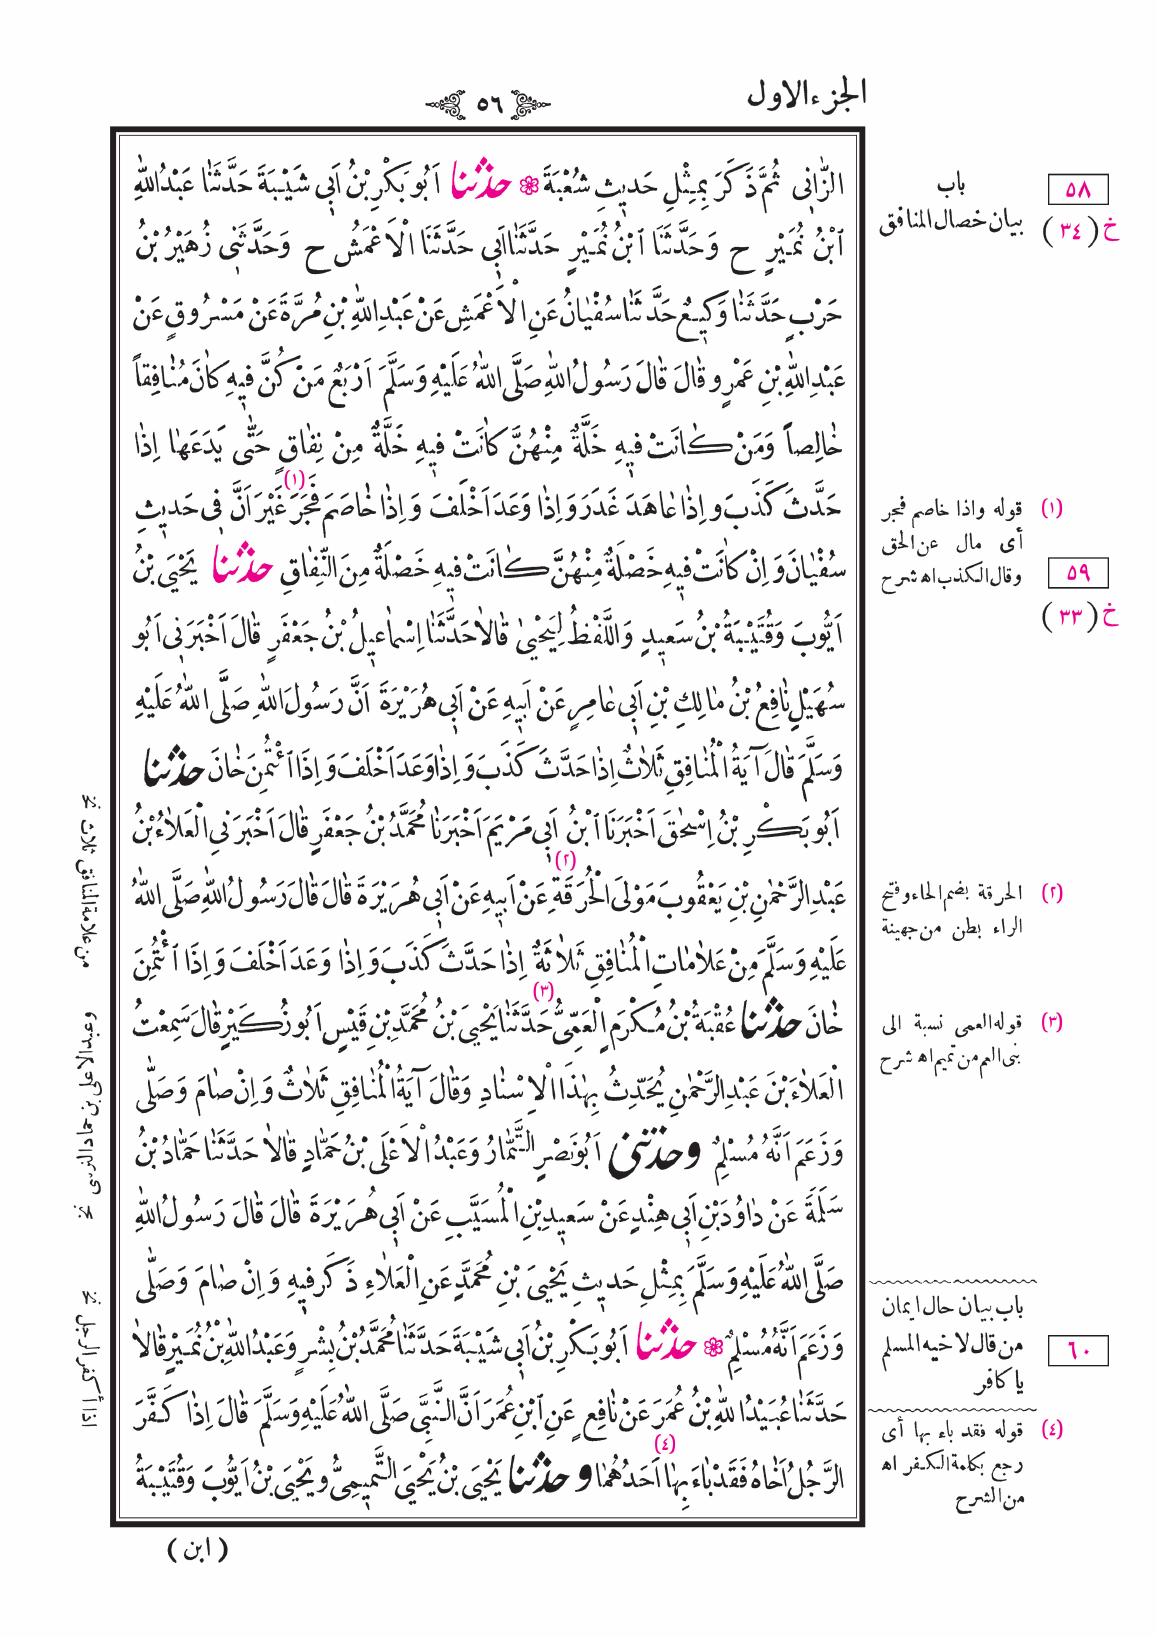 الجزء الاول
٥٦
الزَّانِى ثُمَّ ذَكَرَ بِمِثْلِ حَدِيثِ شُعْبَةَ حَدَّثَنَا اَبُو بَكْرِ بْنُ اَبِى شَيْبَةَ حَدَّثَنَا عَبْدُ اللهِ
ٱبْنُ نُمَيْرٍ ح وَحَدَّثَنَا ٱبْنُ نُمَيْرٍ حَدَّثَنَا اَبِى حَدَّثَنَا الْاَعْمَشُ ح وَحَدَّثَنِى زُهَيْرُ بْنُ
حَرْبٍ حَدَّثَنَا وَكِيعٌ حَدَّثَنَا سُفْيَانُ عَنِ الْاَعْمَشِ عَنْ عَبْدِ اللهِ بْنِ مُرَّةَ عَنْ مَسْرُوقٍ عَنْ
عَبْدِ اللهِ بْنِ عَمْرٍو قَالَ قَالَ رَسُولُ اللهِ صَلَّى اللهُ عَلَيْهِ وَسَلَّمَ اَرْبَعٌ مَنْ كُنَّ فِيهِ كَانَ مُنَافِقاً
خَالِصاً وَمَنْ كَانَتْ فِيهِ خَلَّةٌ مِنْهُنَّ كَانَتْ فِيهِ خَلَّةٌ مِنْ نِفَاقٍ حَتَّى يَدَعَهَا اِذَا
حَدَّثَ كَذَبَ وَاِذَا عَاهَدَ غَدَرَ وَاِذَا وَعَدَ اَخْلَفَ وَاِذَا خَاصَمَ فَجَرَ (١) غَيْرَ اَنَّ فِى حَدِيثِ
سُفْيَانَ وَاِنْ كَانَتْ فِيهِ خَصْلَةٌ مِنْهُنَّ كَانَتْ فِيهِ خَصْلَةٌ مِنَ النِّفَاقِ حَدَّثَنَا يَحْيَى بْنُ
اَيُّوبَ وَقُتَيْبَةُ بْنُ سَعِيدٍ وَاللَّفْظُ لِيَحْيَى قَالَا حَدَّثَنَا اِسْمَاعِيلُ بْنُ جَعْفَرٍ قَالَ اَخْبَرَنِى اَبُو
سُهَيْلٍ نَافِعُ بْنُ مَالِكِ بْنِ اَبِى عَامِرٍ عَنْ اَبِيهِ عَنْ اَبِى هُرَيْرَةَ اَنَّ رَسُولَ اللهِ صَلَّى اللهُ عَلَيْهِ
وَسَلَّمَ قَالَ آيَةُ الْمُنَافِقِ ثَلَاثٌ اِذَا حَدَّثَ كَذَبَ وَاِذَا وَعَدَ اَخْلَفَ وَاِذَا ٱئْتُمِنَ خَانَ حَدَّثَنَا
اَبُو بَكْرِ بْنُ اِسْحٰقَ اَخْبَرَنَا ٱبْنُ اَبِى مَرْيَمَ اَخْبَرَنَا مُحَمَّدُ بْنُ جَعْفَرٍ قَالَ اَخْبَرَنِى الْعَلَاءُ بْنُ
عَبْدِ الرَّحْمٰنِ بْنِ يَعْقُوبَ مَوْلَى الْحُرَقَةِ (٢) عَنْ اَبِيهِ عَنْ اَبِى هُرَيْرَةَ قَالَ قَالَ رَسُولُ اللهِ صَلَّى اللهُ
عَلَيْهِ وَسَلَّمَ مِنْ عَلَامَاتِ الْمُنَافِقِ ثَلَاثَةٌ اِذَا حَدَّثَ كَذَبَ وَاِذَا وَعَدَ اَخْلَفَ وَاِذَا ٱئْتُمِنَ
خَانَ حَدَّثَنَا عُقْبَةُ بْنُ مُكْرَمٍ الْعَمِّىُّ (٣) حَدَّثَنَا يَحْيَى بْنُ مُحَمَّدِ بْنِ قَيْسٍ اَبُو زُكَيْرٍ قَالَ سَمِعْتُ
الْعَلَاءَ بْنَ عَبْدِ الرَّحْمٰنِ يُحَدِّثُ بِهٰذَا الْاِسْنَادِ وَقَالَ آيَةُ الْمُنَافِقِ ثَلَاثٌ وَاِنْ صَامَ وَصَلَّى
وَزَعَمَ اَنَّهُ مُسْلِمٌ وَحَدَّثَنِى اَبُو نَصْرٍ التَّمَّارُ وَعَبْدُ الْاَعْلَى بْنُ حَمَّادٍ قَالَا حَدَّثَنَا حَمَّادُ بْنُ
سَلَمَةَ عَنْ دَاوُدَ بْنِ اَبِى هِنْدٍ عَنْ سَعِيدِ بْنِ الْمُسَيَّبِ عَنْ اَبِى هُرَيْرَةَ قَالَ قَالَ رَسُولُ اللهِ
صَلَّى اللهُ عَلَيْهِ وَسَلَّمَ بِمِثْلِ حَدِيثِ يَحْيَى بْنِ مُحَمَّدٍ عَنِ الْعَلَاءِ ذَكَرَ فِيهِ وَاِنْ صَامَ وَصَلَّى
وَزَعَمَ اَنَّهُ مُسْلِمٌ حَدَّثَنَا اَبُو بَكْرِ بْنُ اَبِى شَيْبَةَ حَدَّثَنَا مُحَمَّدُ بْنُ بِشْرٍ وَعَبْدُ اللهِ بْنُ نُمَيْرٍ قَالَا
حَدَّثَنَا عُبَيْدُ اللهِ بْنُ عُمَرَ عَنْ نَافِعٍ عَنِ ٱبْنِ عُمَرَ اَنَّ النَّبِىَّ صَلَّى اللهُ عَلَيْهِ وَسَلَّمَ قَالَ اِذَا كَفَّرَ
الرَّجُلُ اَخَاهُ فَقَدْ بَاءَ بِهَا (٤) اَحَدُهُمَا وَحَدَّثَنَا يَحْيَى بْنُ يَحْيَى التَّمِيمِىُّ وَيَحْيَى بْنُ اَيُّوبَ وَقُتَيْبَةُ
( ابن )
٥٨
باب
بيان خصال المنافق
خ ( ٣٤ )
(١) قوله واذا خاصم فجر
أى مال عن الحق
وقال الكذب اه شرح
٥٩
خ ( ٣٣ )
(٢) الحرقة بضم الحاء وفتح
الراء بطن من جهينة
(٣) قوله العمى نسبة الى
بنى العم من تميم اه شرح
باب بيان حال ايمان
من قال لاخيه المسلم
يا كافر
٦٠
(٤) قوله فقد باء بها أى
رجع بكلمة الكفر اه
من الشرح
من علامة المنافق ثلاث نخ
وعبد الاعلى بن حماد النرسى نخ
اذا أكفر الرجل نخ